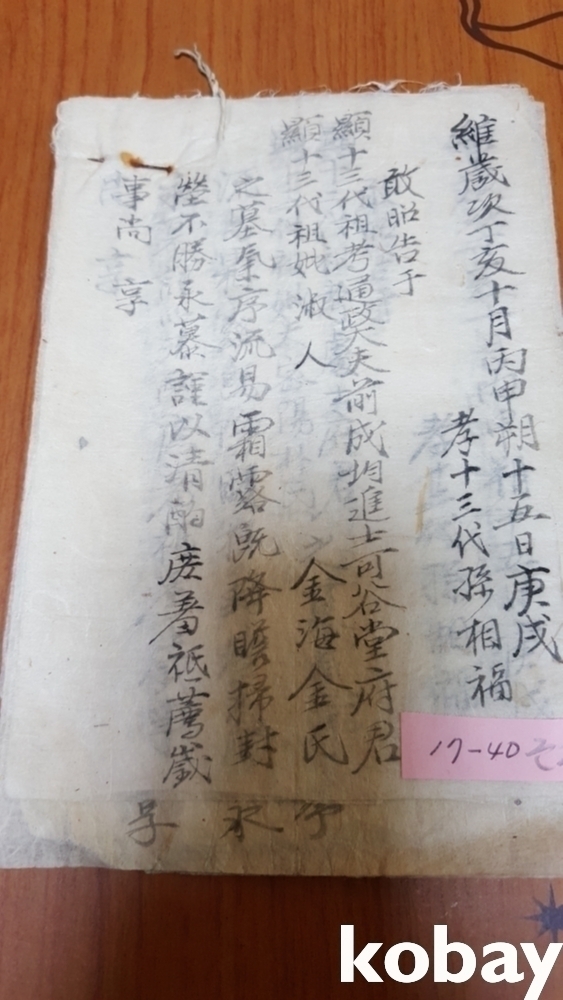 維歲次丁亥十月丙申朔十五日庚戌
孝十三代孫相福
敢昭告于
顯十三代祖考通政大夫前成均進士可谷堂府君
顯十三代祖妣淑人 金海金氏
之墓氣序流易霜露旣降瞻掃封
塋不勝永慕謹以淸酌庶羞祗薦歲
事尙 享
17-40
kobay